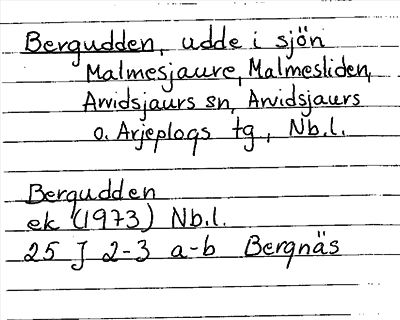 Bergudden, udde i sjön
Malmesjaure, Malmesliden,
Arvidsjaurs sn, Arvidsjaurs
o. Arjeplogs tg, Nb.l.
Bergudden
ek (1973) Nb.l.
25 J 2-3 a-b Bergnäs